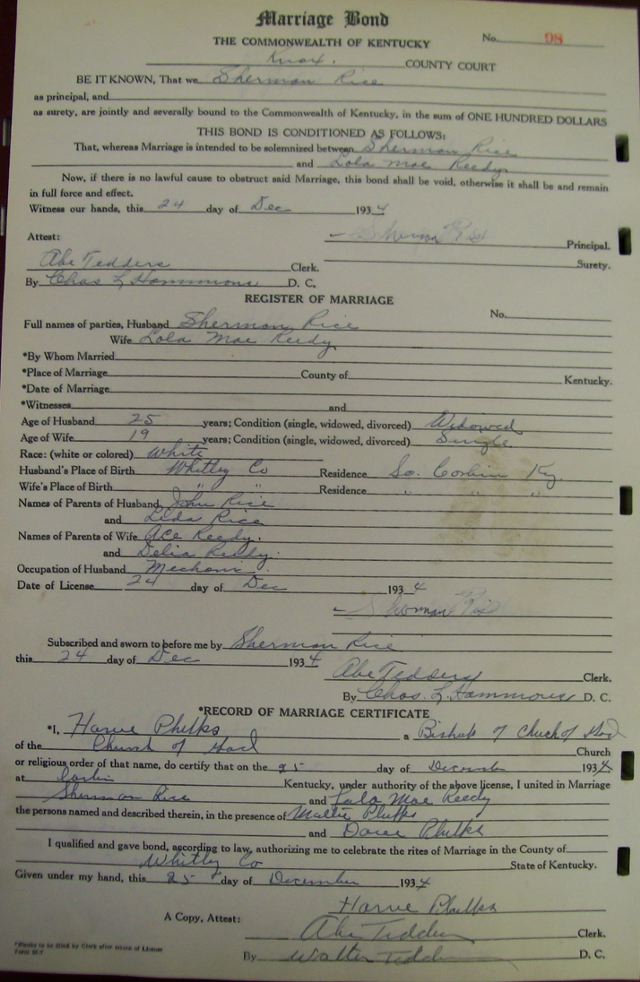 Marriage Bond
THE COMMONWEALTH OF KENTUCKY No. 98
Knox. COUNTY COURT
BE IT KNOWN, That we Sherman Rice
as principal, and
as surety, are jointly and severally bound to the Commonwealth of Kentucky, in the sum of ONE HUNDRED DOLLARS
THIS BOND IS CONDITIONED AS FOLLOWS:
That, whereas Marriage is intended to be solemnized between Sherman Rice
and Lola Mae Reedy
Now, if there is no lawful cause to obstruct said Marriage, this bond shall be void, otherwise it shall be and remain
in full force and effect.
Witness our hands, this 24 day of Dec 1934
Attest: Sherman Rice Principal.
Abe Tedders Clerk. Surety.
By Chas L Hammons D. C.
REGISTER OF MARRIAGE
Full names of parties, Husband Sherman Rice No.
Wife Lola Mae Reedy
*By Whom Married
*Place of Marriage County of Kentucky.
*Date of Marriage
*Witnesses and
Age of Husband 25 years; Condition (single, widowed, divorced) Widowed
Age of Wife 19 years; Condition (single, widowed, divorced) Single
Race: (white or colored) White
Husband's Place of Birth Whitley Co Residence So. Corbin Ky.
Wife's Place of Birth " " Residence " " "
Names of Parents of Husband John Rice
and Lida Rice
Names of Parents of Wife Ace Reedy.
and Delia Reedy.
Occupation of Husband Mechanic.
Date of License 24 day of Dec 1934
Sherman Rice
Subscribed and sworn to before me by Sherman Rice
this 24 day of Dec 1934 Abe Tedders Clerk.
By Chas. L. Hammons D. C.
*RECORD OF MARRIAGE CERTIFICATE
*I, Harve Phelps a Bishop of Chuch of God
of the Church of God Church
or religious order of that name, do certify that on the 25 day of December 1934
at Corbin Kentucky, under authority of the above license, I united in Marriage
Sherman Rice and Lula Mae Reedy
the persons named and described therein, in the presence of Mattie Phelps
and Phelps
I qualified and gave bond, according to law, authorizing me to celebrate the rites of Marriage in the County of
Whitley Co State of Kentucky.
Given under my hand, this 25 day of December 1934
Harve Phelps
A Copy, Attest: Abe Tedders Clerk.
By Walter Tedders D. C.
*Blanks to be filled by Clerk after return of License